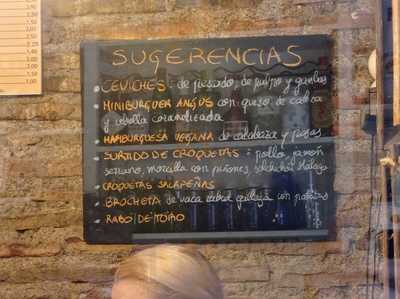 SUGERENCIAS
CEVICHES : de pescado, de pulpo y gambas
MINIBURGUER ANGUS con queso de cabra
y cebolla caramelizada
HAMBURGUESA VEGANA de calabaza y pasas
SURTIDO DE CROQUETAS : pollo, jamón
serrano, morcilla con piñones, salchichón Málaga
CROQUETAS SALAPEÑAS
BROCHETA de vaca rubia gallega con patatas
RABO DE TORO